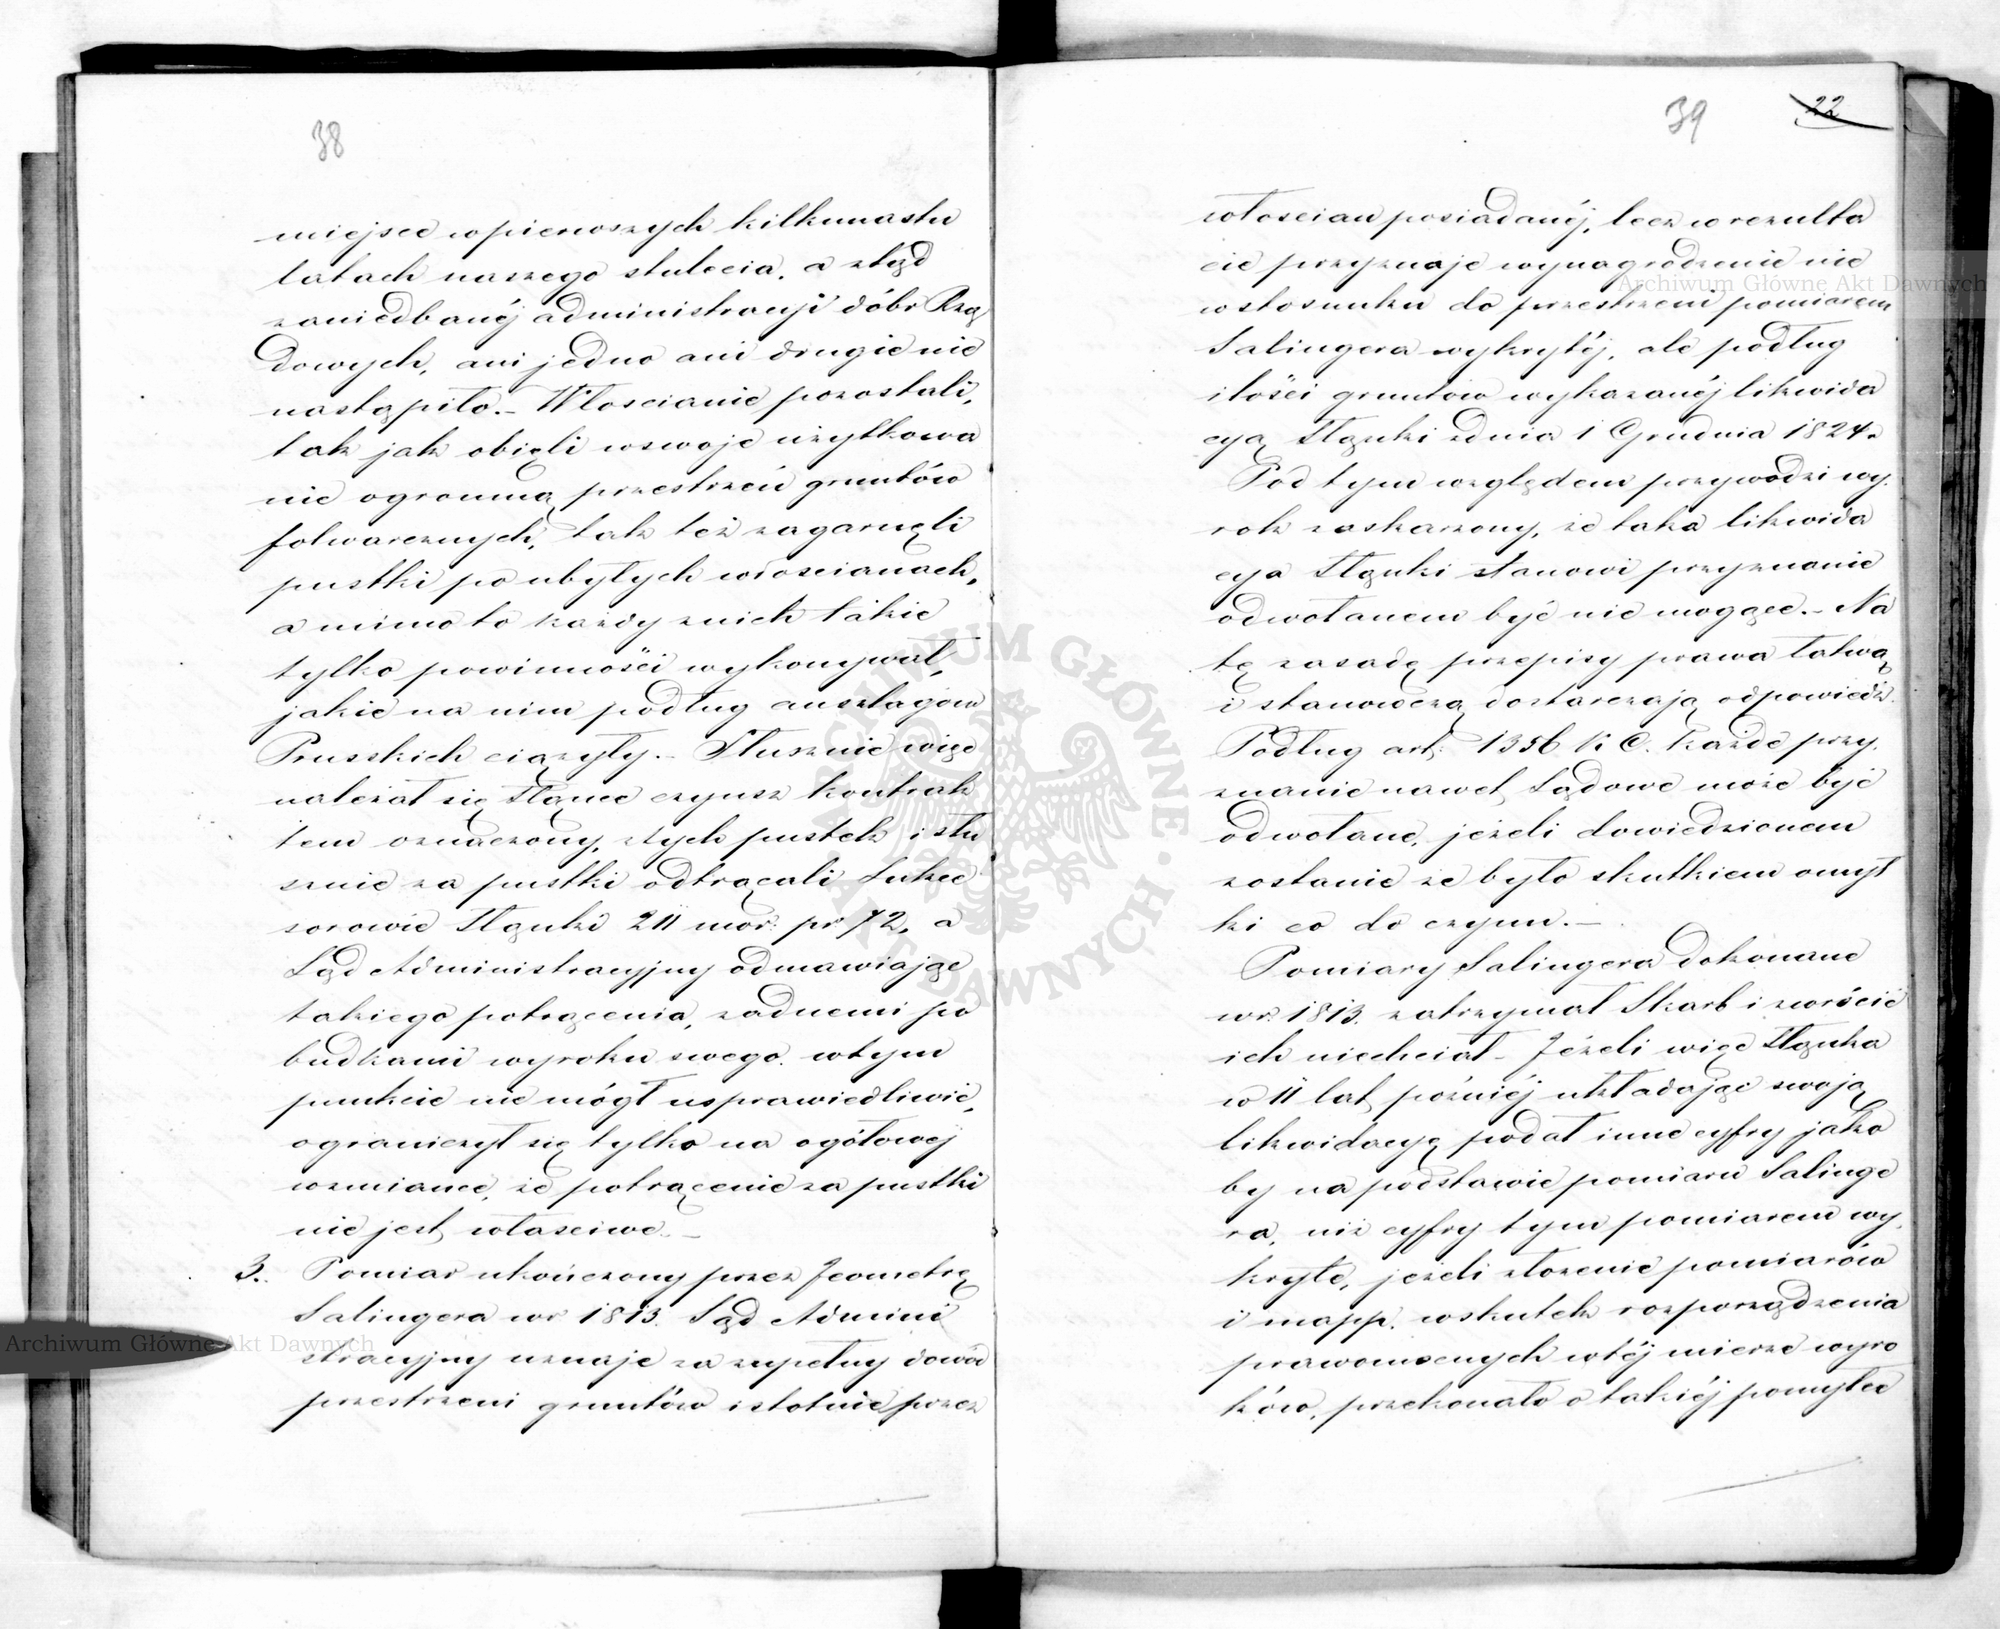 38
miejsce w pierwszych kilkunastu
latach naszego stulecia, a ztąd
zaniedbanéj administracyi dóbr Rzą
dowych, ani jedno ani drugie nie
nastąpiło.- Włościanie pozostali,
tak jak objęli w swoje użytkowa
nie ogromną przestrzeń gruntów
folwarcznych, tak też zagarnęli
pustki po ubyłych włoscianach,
a mimo to każdy z nich takie
tylko powinności wykonywał,
jakie na nim podług anszlagów
Prusskich ciążyły.- Słusznie więc
należał się Ilgnce czynsz kontrak
tem oznaczony, z tych pustek i słu
sznie za pustki odtrącali Sukce
sorowie Ilgnki 211 mor: pr 72, a
Sąd Administracyjny odmawiając
takiego potrącenia, żadnemi po
budkami wyroku swego w tym
punkcie nie mógł usprawiedliwić,
ograniczył się tylko na ogółowej
wzmiance, że potrącenie za pustki
nie jest właściwe.-
3. Pomiar ukończony przez Jeometrę
Salingera w r 1813. Sąd Admini
stracyjny uznaje za zupełny dowód
przestrzeni gruntów istotnie przez
39 22
włościan posiadanéj, lecz w rezulta
cie przyznaje wynagrodzenie nie
w stosunku do przestrzeni pomiarem
Salingera wykrytéj, ale podług
ilości gruntów wykazanéj likwida
cyą Ilgnki z dnia 1 Grudnia 1824 r
Pod tym względem przywodzi wy-
rok zaskarżony, że taka likwida
cya Ilgnki stanowi przyznanie
odwołanem być nie mogące.- Na
tę zasadę przepisy prawa łatwą
i stanowczą dostarczają odpowiedź.
Podług art: 1356 K C. każde przy-
znanie nawet Sądowe może być
odwołane, jeżeli dowiedzionem
zostanie że było skutkiem omył
ki co do czynu.-
Pomiary Salingera dokonane
w r. 1813. zatrzymał Skarb i zwrócić
ich niechciał- Jeżeli więc Ilgnka
w 11 lat później układając swoją
likwidacyę podał inne cyfry jako
by na podstawie pomiaru Salinge
ra, niż cyfry tym pomiarem wy-
kryte, jeżeli złożenie pomiarów
i mapp. wskutek rozporządzenia
prawomocnych w téj mierze wyro
ków, przekonało o takiéj pomyłce
Archiwum Główne Akt Dawnych
Archiwum Główne Akt Dawnych
ARCHIWUM GŁÓWNE AKT DAWNYCH